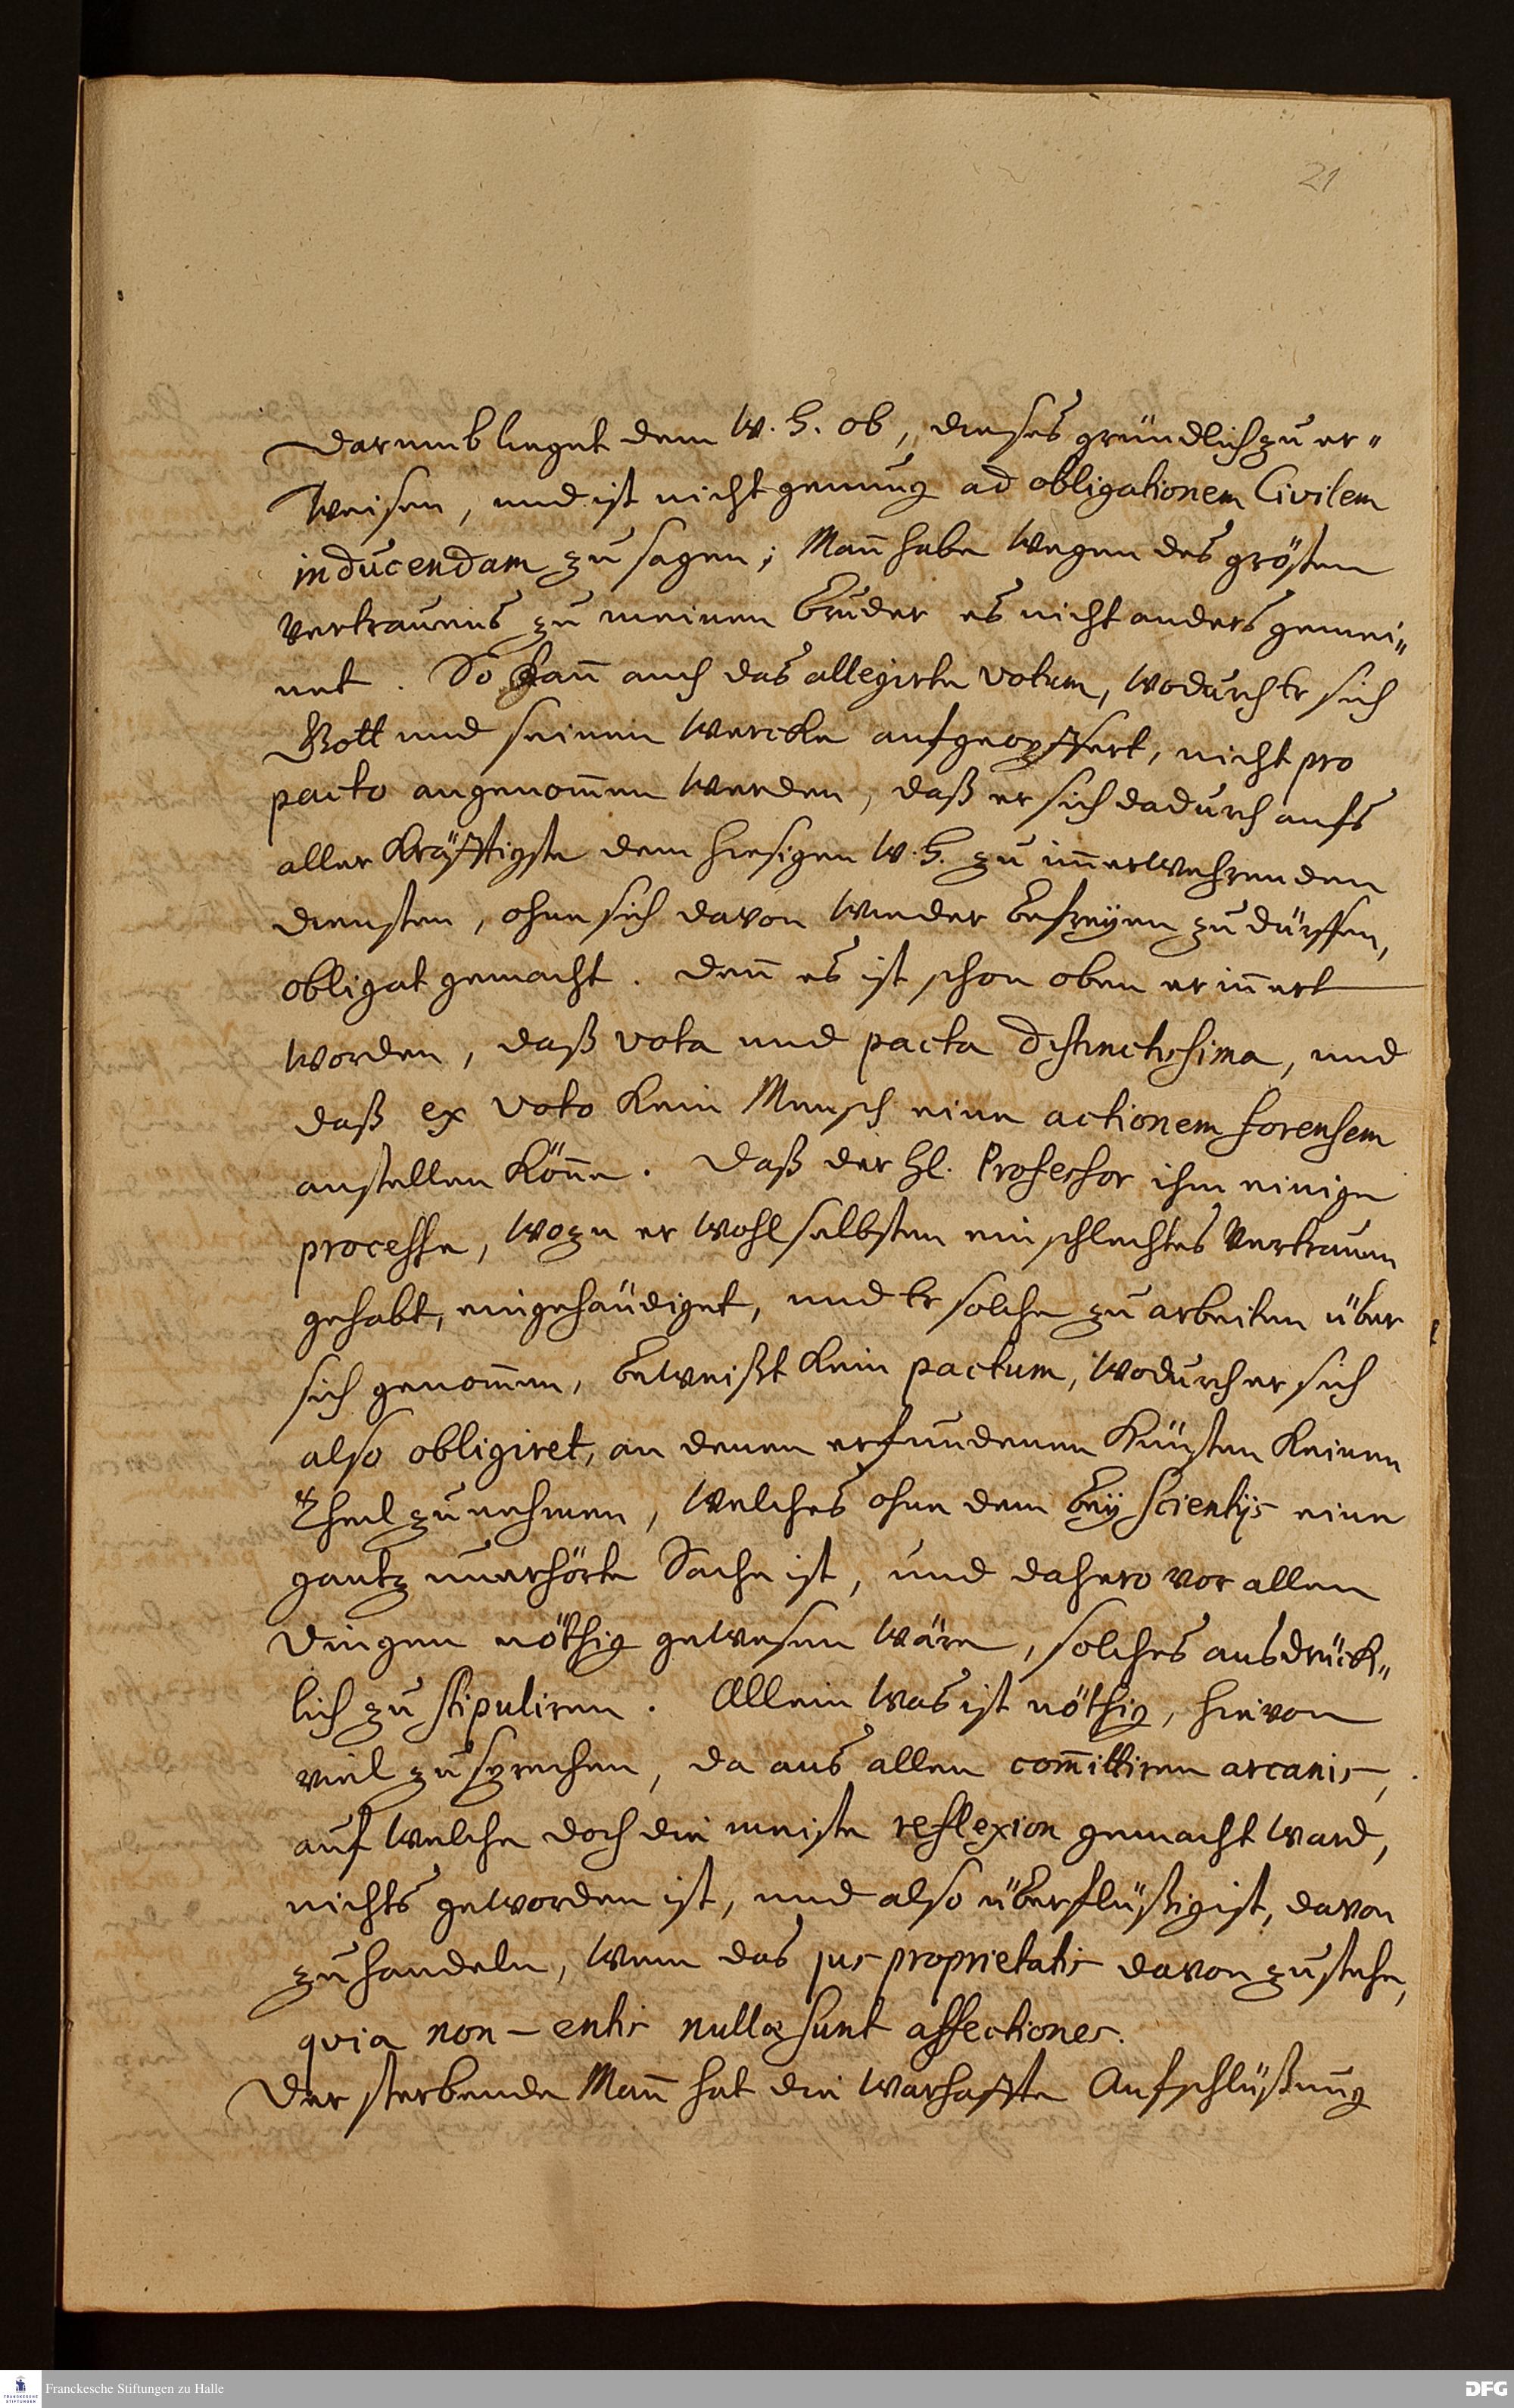 21
Darumb lieget dem W. H. ob, dieses gründlich zu er„
weisen, und ist nicht genung ad obligationem Civilem
inducendam zu sagen; Mañ habe wegen des grösten
Vertrauens zu meinem Bruder es nicht anders gemei„
net. So kañ auch das allegirte votum, wodurch Er sich
Gott und seinem Wercke aufgeopffert, nicht pro
pacto angenom̃en werden, daß er sich dadurch aufs
aller kräfftigste dem hiesigen W. H. zu im̃erwehrenden
diensten, ohne sich davon wieder befreyen zu dürffen,
obligat gemacht. Deñ es ist schon oben eriñert
worden, daß vota und pacta distinctissima, und
daß ex voto kein Mensch eine actionem forensem
anstellen köñe. Daß der Hl. Professor ihm einige
processe, wozu er wohl selbsten ein schlechtes Vertrauen
gehabt, eingehändiget, und Er solche zu arbeiten über
sich genom̃en, beweißt kein pactum, wodurch er sich
also obligiret, an denen erfundenen Künsten keinen
Theil zu nehmen, welches ohne dem bey Scientijs eine
gantz unerhörte Sache ist, und dahero vor allen
Dingen nöthig gewesen wäre, solches ausdrück„
lich zu stipuliren. Allein was ist nöthig, hievon
viel zu sprechen, da aus allen com̃ittiren arcanis,
auf welche doch die meiste reflexion gemacht ward,
nichts geworden ist, und also überflüßig ist, davon
zu handeln, wem das jus proprietatis davon zustehe,
quia non-entis nullæ sunt affectiones.
Der sterbende Mañ hat die warhaffte Aufschlüßung
Franckesche Stiftungen zu Halle
FRANCKESCHE STIFTUNGEN
DFG